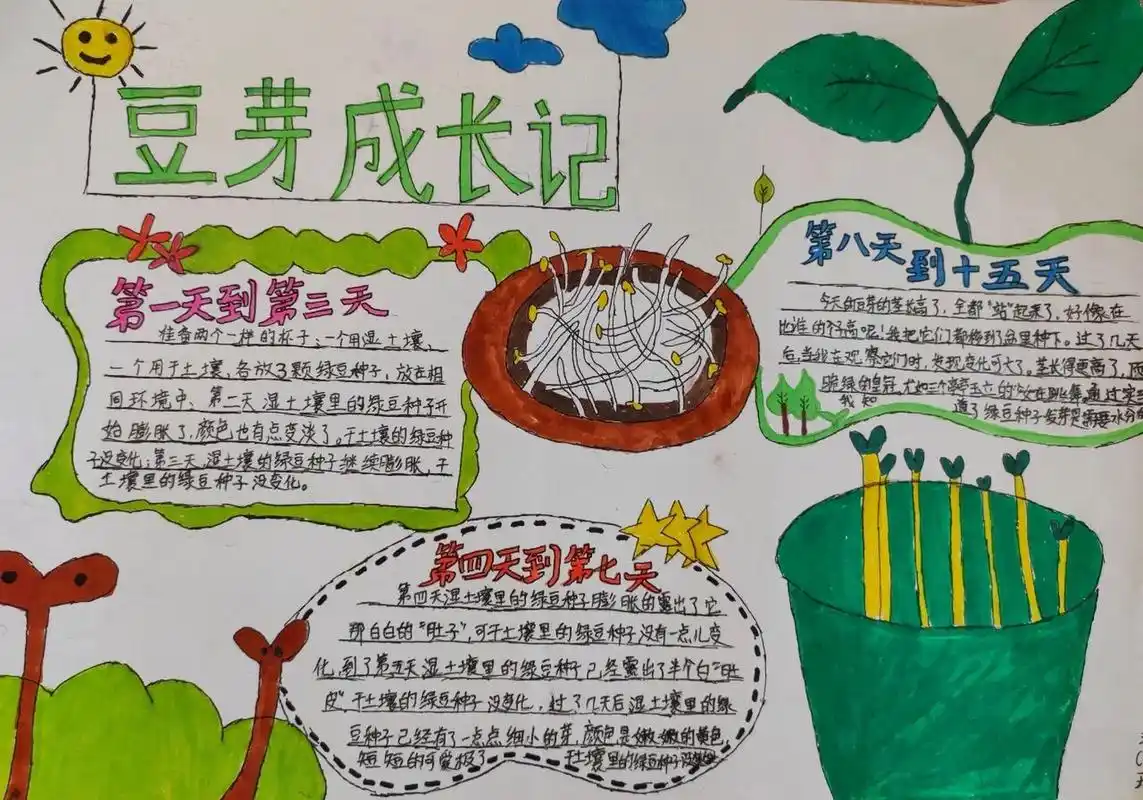 豆芽成长记
第一天到第三天
准备两个一样的杯子:一个用湿土壤、
一个用干土壤、各放了颗绿豆种子,放在相
同环境中、第二天湿土壤里的绿豆种子开
始膨胀了,颜色也有点变淡了。干土壤的绿豆种
子没变化;第三天湿土壤的绿豆种子继续膨胀,干
土壤里的绿豆种子没变化。
第四天到第七天
第四天湿土壤里的绿豆种子膨胀的露出了它
那白白的“肚子”,可干土壤里的绿豆种子没有一点儿变
化,到了第五天湿土壤里的绿豆种子已经露出了半个白“肚
皮”干土壤的绿豆种子没变化,过了几天后湿土壤里的绿
豆种子已经有了一点点细小的芽,颜色是嫩嫩的黄色,
短短的可爱极了 干土壤里的绿豆种子没变化
第八天到十五天
今天的豆芽的茎长高了,全都“站”起来了,好像在
比谁的个高呢!我把它们都移到盆里种下。过了几天
后,当我在观察它们时,发现变化可大了。茎长得更高了,而
绿的皇冠,尤如三个亭亭玉立的 在跳舞,通过
我知道了绿豆种子发芽是需要水分